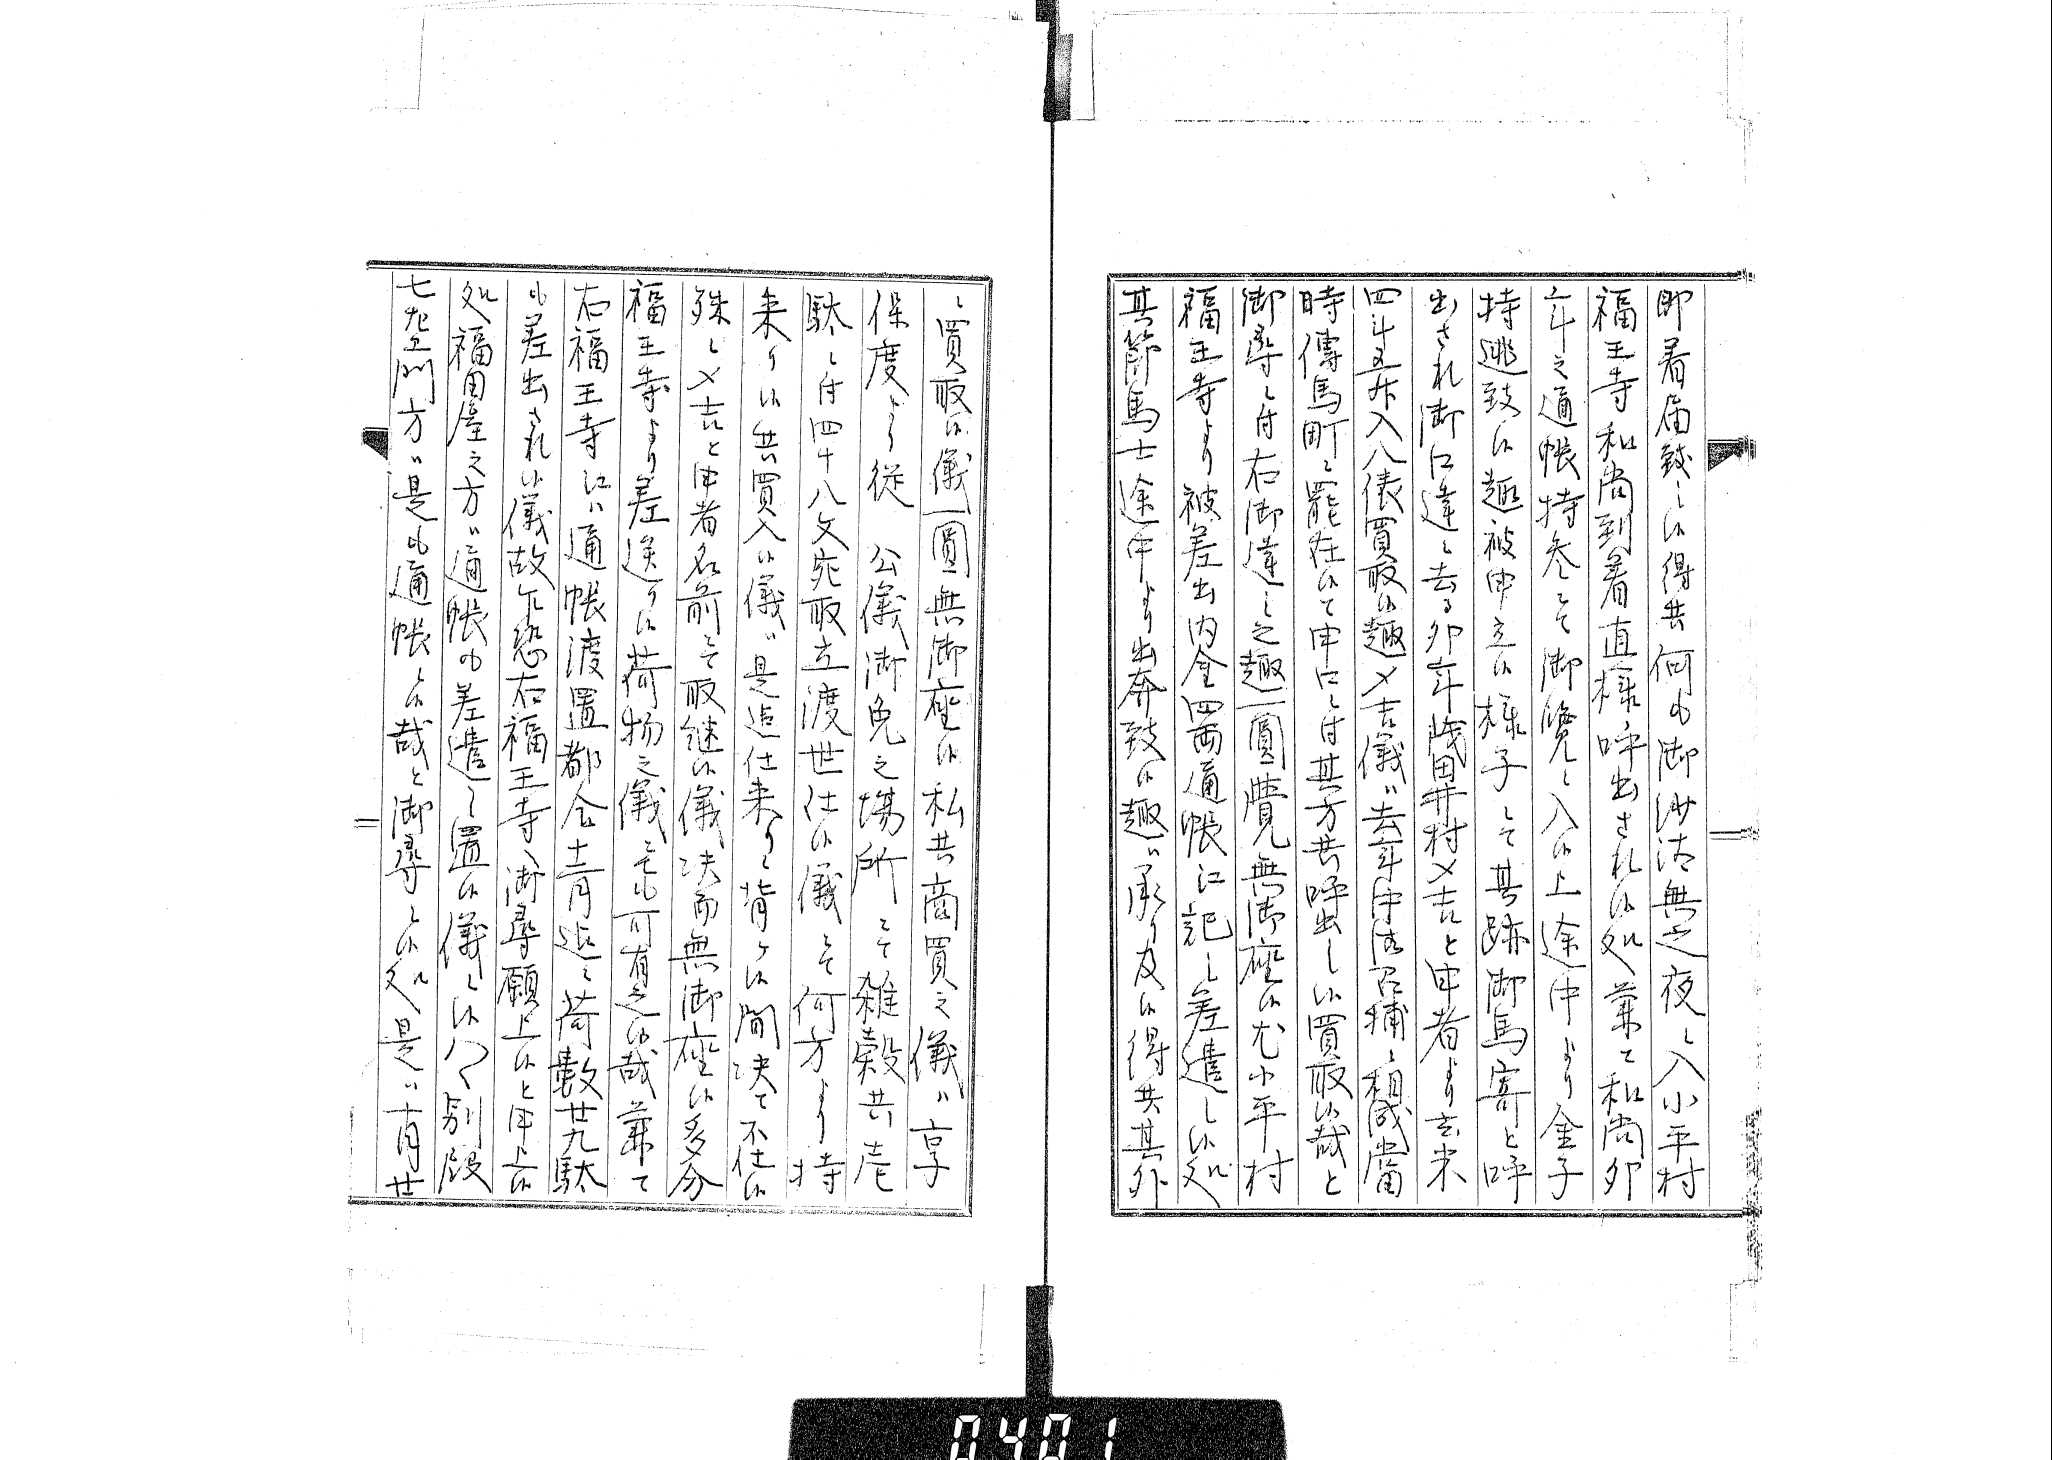 即着届致し候得共何も御沙汰無之夜ニ入小平村
福王寺和尚到着直様呼出され候処兼て和尚卯
年之通帳持参ニて御覧ニ入候上途中より金子
持逃致候趣被申立候様子して其跡御馬寄と呼
出され御口達ニ去る卯年茂田井村〆吉と申者より玄米
四斗五升入八俵買取候趣〆吉儀ハ去年中御召捕ニ相成当
時傳馬町ニ罷在候て申口ニ付其方共呼出し候買取候哉と
御尋ニ付右御達し之趣一圓覚無御座候尤小平村
福王寺より被差出内金四両通帳江記し差遣し候処
其節馬士途中より出奔致候趣ハ承り及候得共其外
ニ買取候儀一圓無御座候私共商買之儀ハ享
保度より従 公儀御免之場所ニて雑穀共壱
駄ニ付四十八文宛取立渡世仕候儀ニて何方より持
来り候共買入候儀ハ是迄仕来りニ背ケ候間決て不仕候
殊ニ〆吉と申者名前ニて取継候儀決而無御座候多分
福王寺より差送り候荷物之儀ニも可有之候哉兼て
右福王寺江ハ通帳渡置都合十二月迄ニ荷数廿九駄
も差出され候儀故乍恐右福王寺へ御尋願上候と申上候
処福田屋之方ハ通帳も差遣し置候儀ニ候八く別段
七左衛門方ハ是も通帳ニ候哉と御尋ニ候処是ハ十月廿